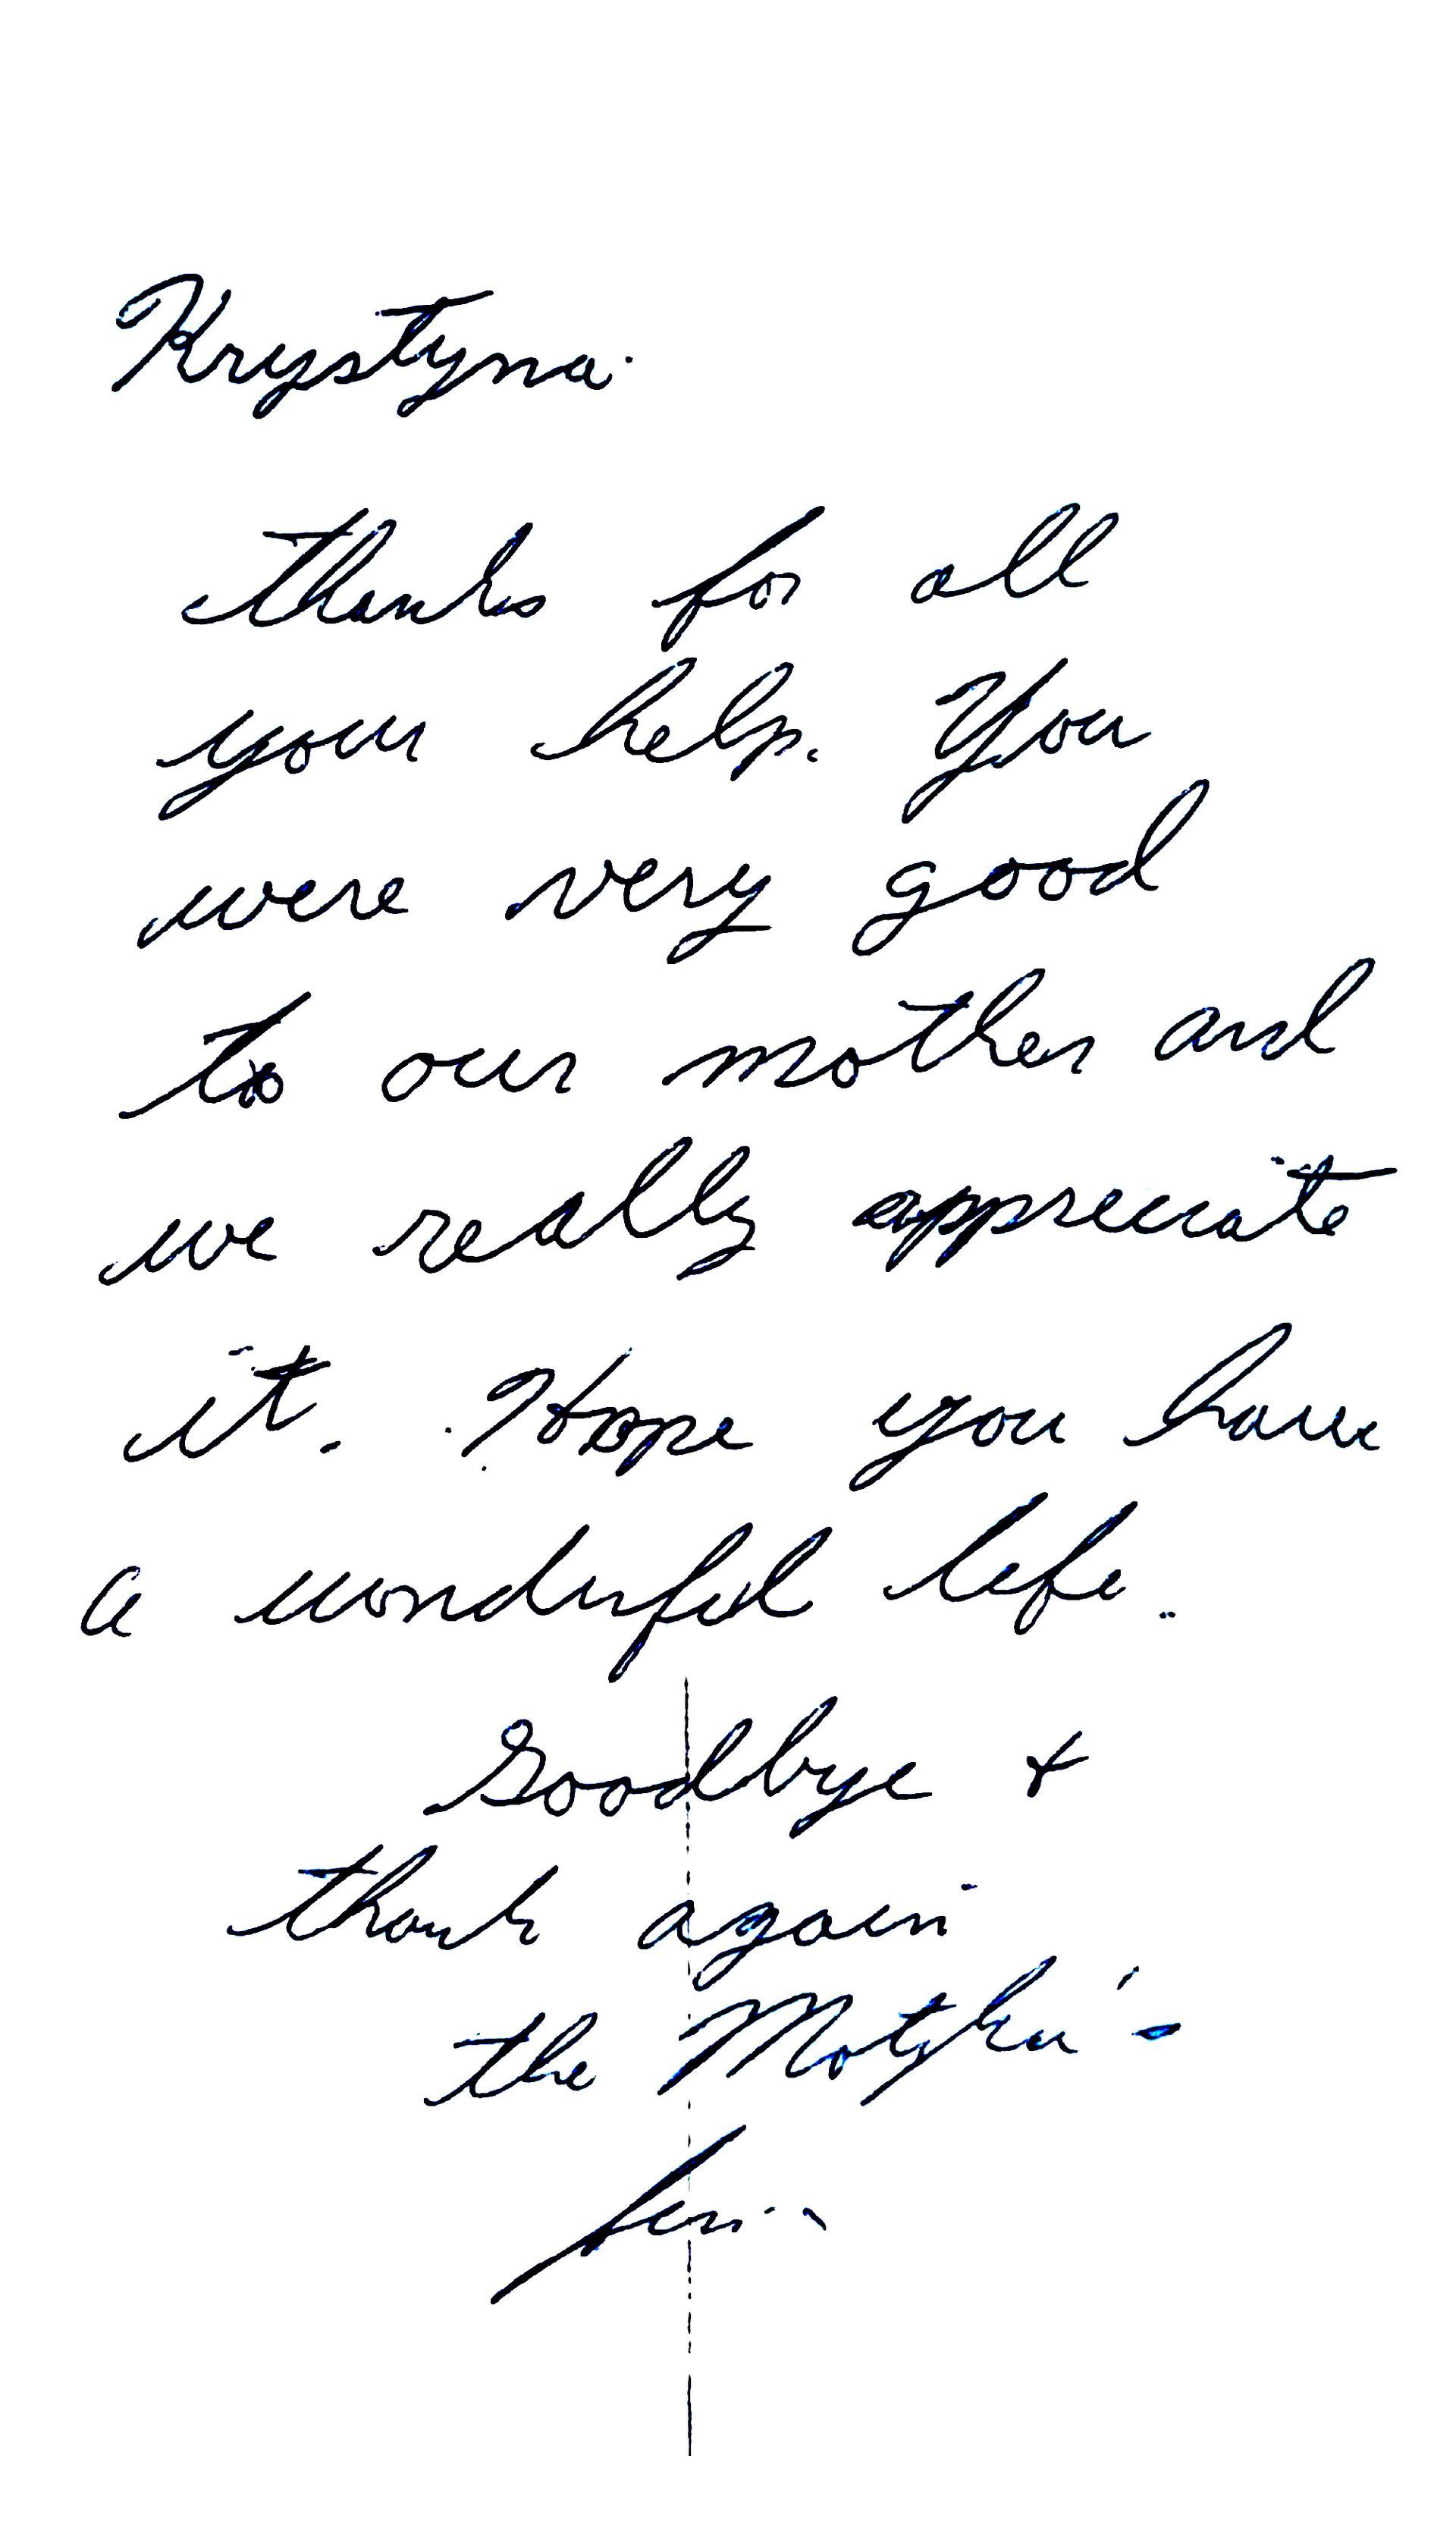 Krystyna.
thanks for all
your help. You
were very good
to our mother and
we really appreciate
it. Hope you have
a wonderful life.
Goodbye &
thank again
the